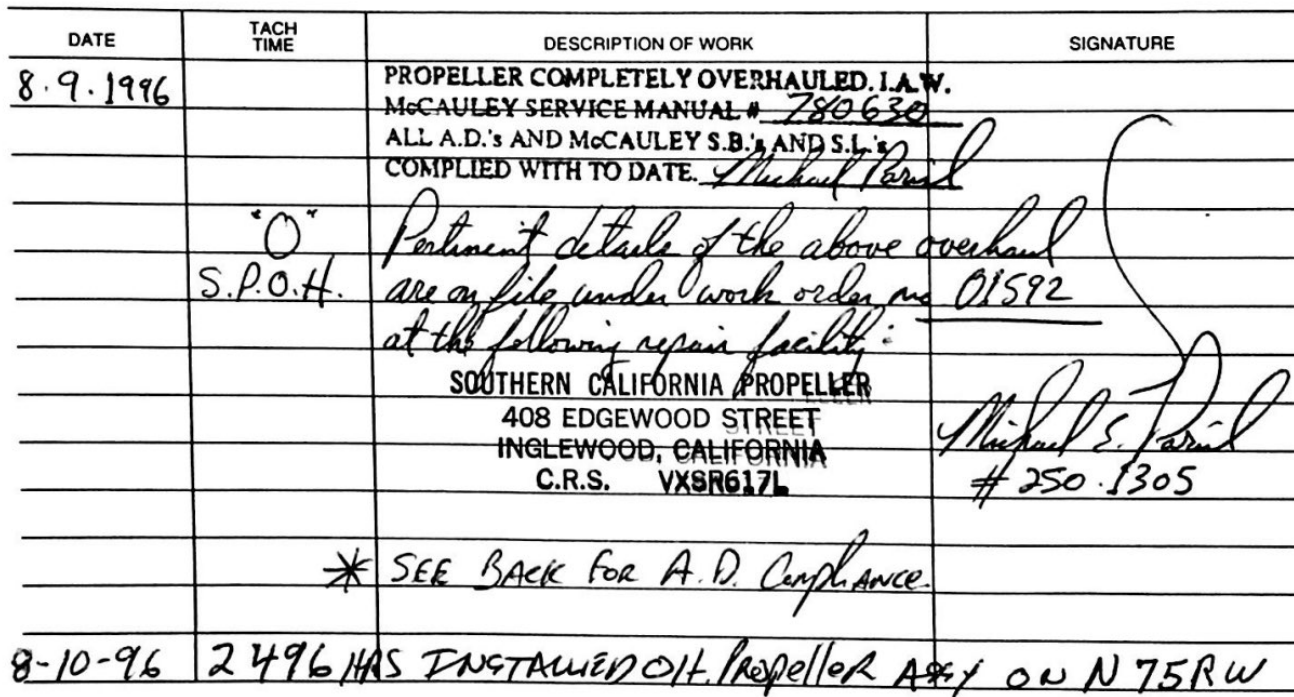 DATE TACH TIME DESCRIPTION OF WORK SIGNATURE
8.9.1996 PROPELLER COMPLETELY OVERHAULED. I.A.W.
McCAULEY SERVICE MANUAL # 780630
ALL A.D.'s AND McCAULEY S.B.'s AND S.L.'s
COMPLIED WITH TO DATE. Michael Parisd
"O" Pertinent details of the above overhaul
S.P.O.H. are on file under work order no 01592
at the following repair facility:
SOUTHERN CALIFORNIA PROPELLER
408 EDGEWOOD STREET Michael E.
INGLEWOOD, CALIFORNIA
C.R.S. VXSR617L # 250.1305
* SEE BACK FOR A.D. Compliance
8-10-96 2496 HRS INSTALLED O.H. Propeller ASSY ON N75RW